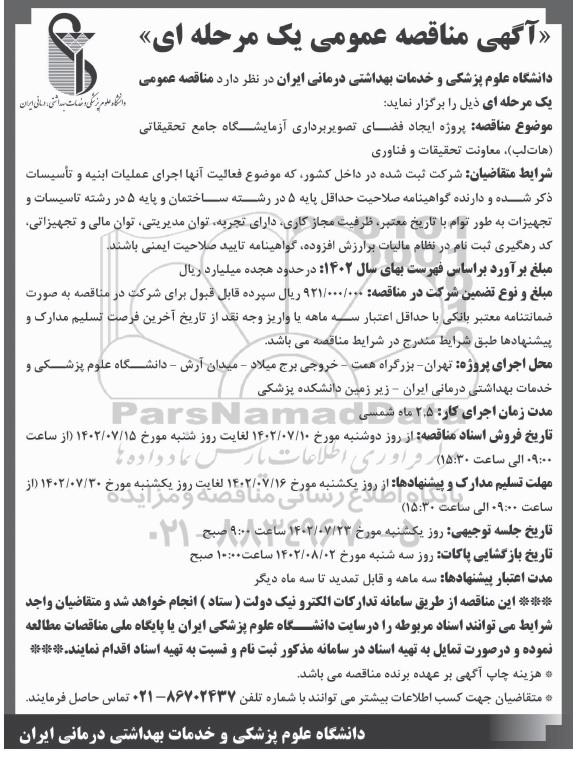 «آگهی مناقصه عمومی یک مرحله ای»
دانشگاه علوم پزشکی و خدمات بهداشتی، درمانی ایران
دانشگاه علوم پزشکی و خدمات بهداشتی درمانی ایران در نظر دارد مناقصه عمومی
یک مرحله ای ذیل را برگزار نماید:
موضوع مناقصه: پروژه ایجاد فضای تصویربرداری آزمایشگاه جامع تحقیقاتی
(هات‌لب)، معاونت تحقیقات و فناوری
شرایط متقاضیان: شرکت ثبت شده در داخل کشور، که موضوع فعالیت آنها اجرای عملیات ابنیه و تأسیسات
ذکر شده و دارنده گواهینامه صلاحیت حداقل پایه ۵ در رشته ساختمان و پایه ۵ در رشته تاسیسات و
تجهیزات به طور توام با تاریخ معتبر، ظرفیت مجاز کاری، دارای تجربه، توان مدیریتی، توان مالی و تجهیزاتی،
کد رهگیری ثبت نام در نظام مالیات برارزش افزوده، گواهینامه تایید صلاحیت ایمنی باشند.
مبلغ برآورد براساس فهرست بهای سال ۱۴۰۲: درحدود هجده میلیارد ریال
مبلغ و نوع تضمین شرکت در مناقصه: ۹۲۱/۰۰۰/۰۰۰ ریال سپرده قابل قبول برای شرکت در مناقصه به صورت
ضمانتنامه معتبر بانکی با حداقل اعتبار سه ماهه یا واریز وجه نقد از تاریخ آخرین فرصت تسلیم مدارک و
پیشنهادها طبق شرایط مندرج در شرایط مناقصه می باشد.
محل اجرای پروژه: تهران- بزرگراه همت - خروجی برج میلاد - میدان آرش - دانشگاه علوم پزشکی و
خدمات بهداشتی درمانی ایران - زیر زمین دانشکده پزشکی
مدت زمان اجرای کار: ۲.۵ ماه شمسی
تاریخ فروش اسناد مناقصه: از روز دوشنبه مورخ ۱۴۰۲/۰۷/۱۰ لغایت روز شنبه مورخ ۱۴۰۲/۰۷/۱۵ (از ساعت
۰۹:۰۰ الی ساعت ۱۵:۳۰)
مهلت تسلیم مدارک و پیشنهادها: از روز یکشنبه مورخ ۱۴۰۲/۰۷/۱۶ لغایت روز یکشنبه مورخ ۱۴۰۲/۰۷/۳۰ (از
ساعت ۰۹:۰۰ الی ساعت ۱۵:۳۰)
تاریخ جلسه توجیهی: روز یکشنبه مورخ ۱۴۰۲/۰۷/۲۳ ساعت ۹:۰۰ صبح
تاریخ بازگشایی پاکات: روز سه شنبه مورخ ۱۴۰۲/۰۸/۰۲ ساعت ۱۰:۰۰ صبح
مدت اعتبار پیشنهادها: سه ماهه و قابل تمدید تا سه ماه دیگر
*** این مناقصه از طریق سامانه تدارکات الکترو نیک دولت ( ستاد ) انجام خواهد شد و متقاضیان واجد
شرایط می توانند اسناد مربوطه را درسایت دانشگاه علوم پزشکی ایران یا پایگاه ملی مناقصات مطالعه
نموده و درصورت تمایل به تهیه اسناد در سامانه مذکور ثبت نام و نسبت به تهیه اسناد اقدام نمایند.***
* هزینه چاپ آگهی بر عهده برنده مناقصه می باشد.
* متقاضیان جهت کسب اطلاعات بیشتر می توانند با شماره تلفن ۸۶۷۰۲۴۳۷-۰۲۱ تماس حاصل فرمایند.
دانشگاه علوم پزشکی و خدمات بهداشتی درمانی ایران
ParsNamadData
پایگاه اطلاع رسانی مناقصه و مزایده